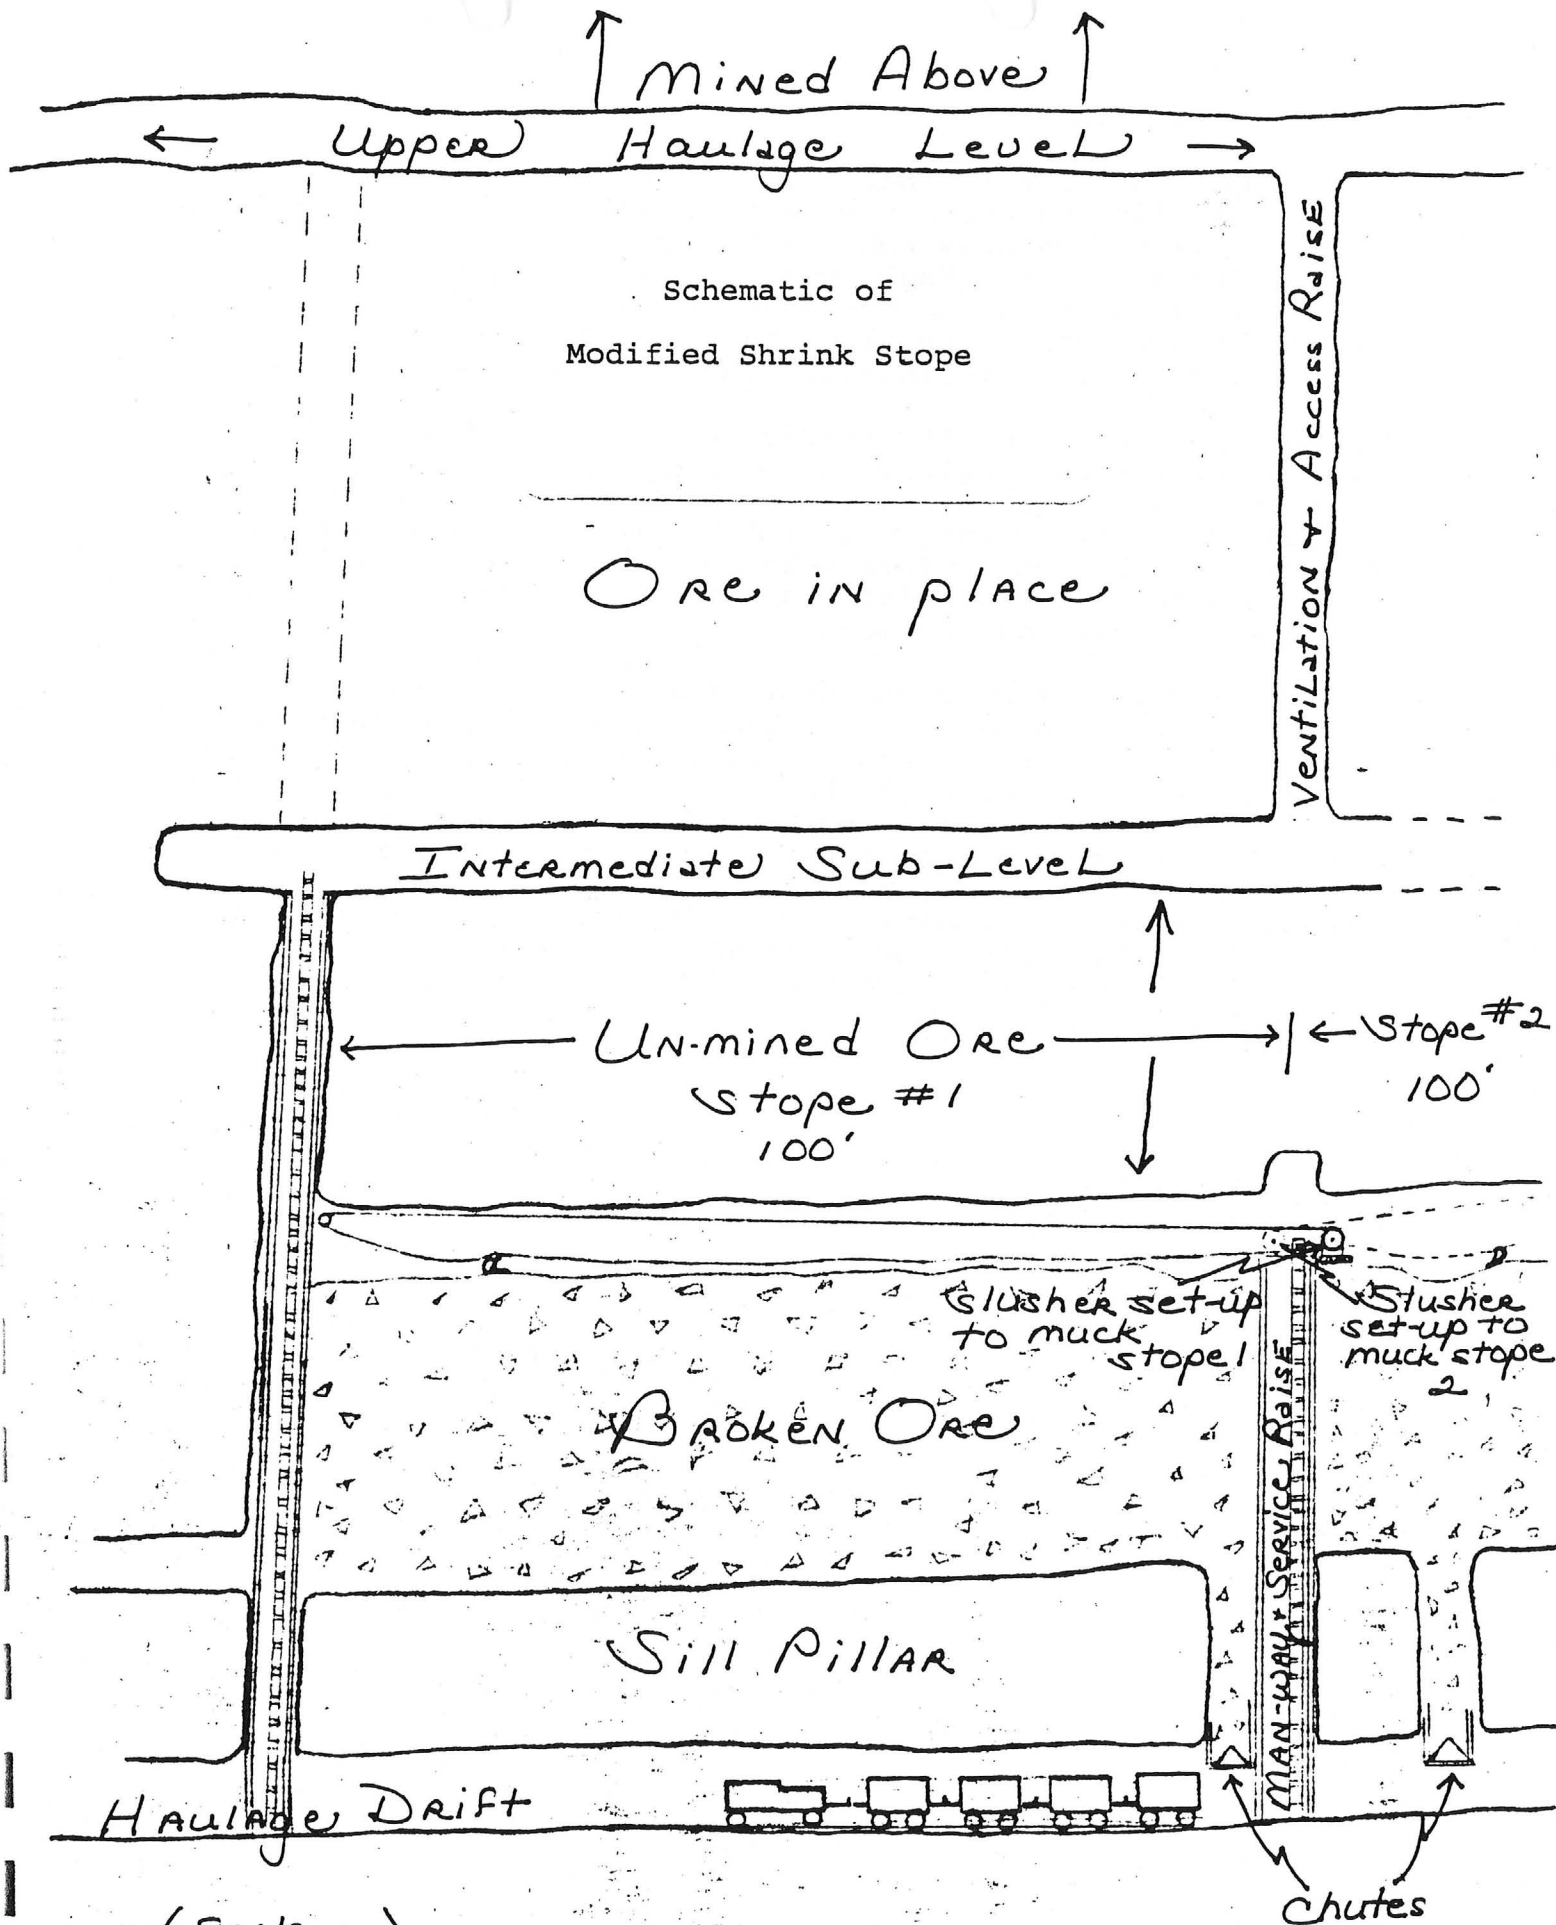 Mined Above
Upper Haulage Level
Schematic of
Modified Shrink Stope
Ventilation & Access Raise
Ore in place
Intermediate Sub-Level
Un-mined Ore
Stope #1
100'
Stope #2
100'
Slusher set-up
to muck
stope 1
Slusher
set-up to
muck stope
2
Broken Ore
Man-way & Service Raise
Sill Pillar
Haulage Drift
Chutes